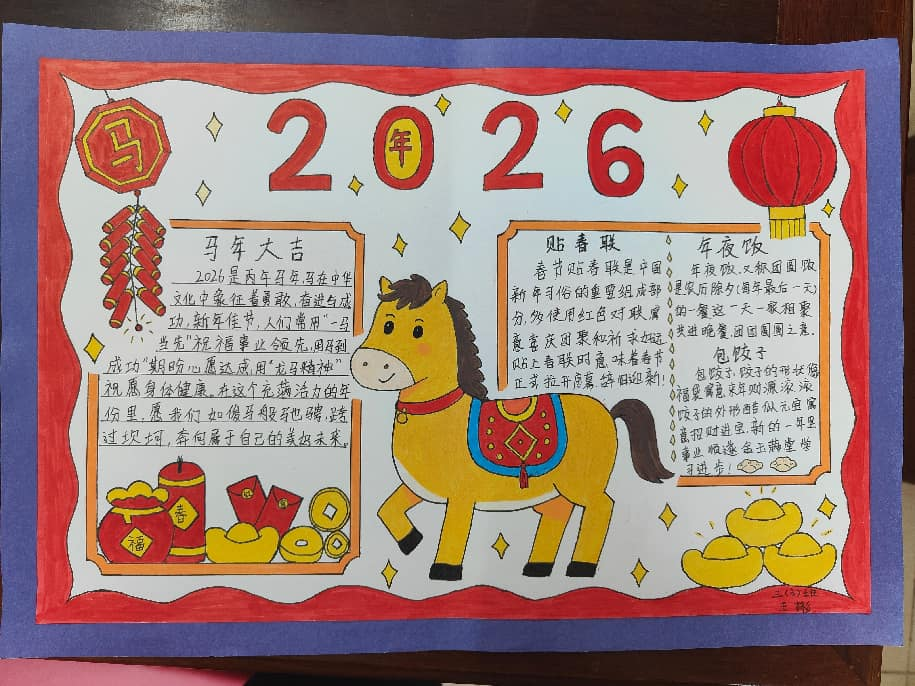 马
2026
年
马年大吉
2026是丙午马年,马在中华
文化中象征着勇敢、奋进与成
功,新年佳节,人们常用“一马
当先”祝福事业领先,用马到
成功”期盼心愿达成,用“龙马精神”
祝愿身体健康。在这个充满活力的年
份里,愿我们如骏马般驰骋,踏
过坎坷,奔向属于自己的美好未来。
福
春
贴春联
春节贴春联是中国
新年习俗的重要组成部
分,多使用红色对联,寓
意喜庆团聚和祈求如运
贴上春联时意味着春节
正式拉开序幕,辞旧迎新!
年夜饭
年夜饭,又称团圆饭
是农历除夕(每年最后一天)
的一餐这一天一家相聚
共进晚餐,团团圆圆之意。
包饺子
包饺子,饺子的形状像
福袋寓意来年财源滚滚
饺子的外形酷似元宝寓
意招财进宝,新的一年里
事业顺遂金玉满堂学
习进步!
三(3)班
王